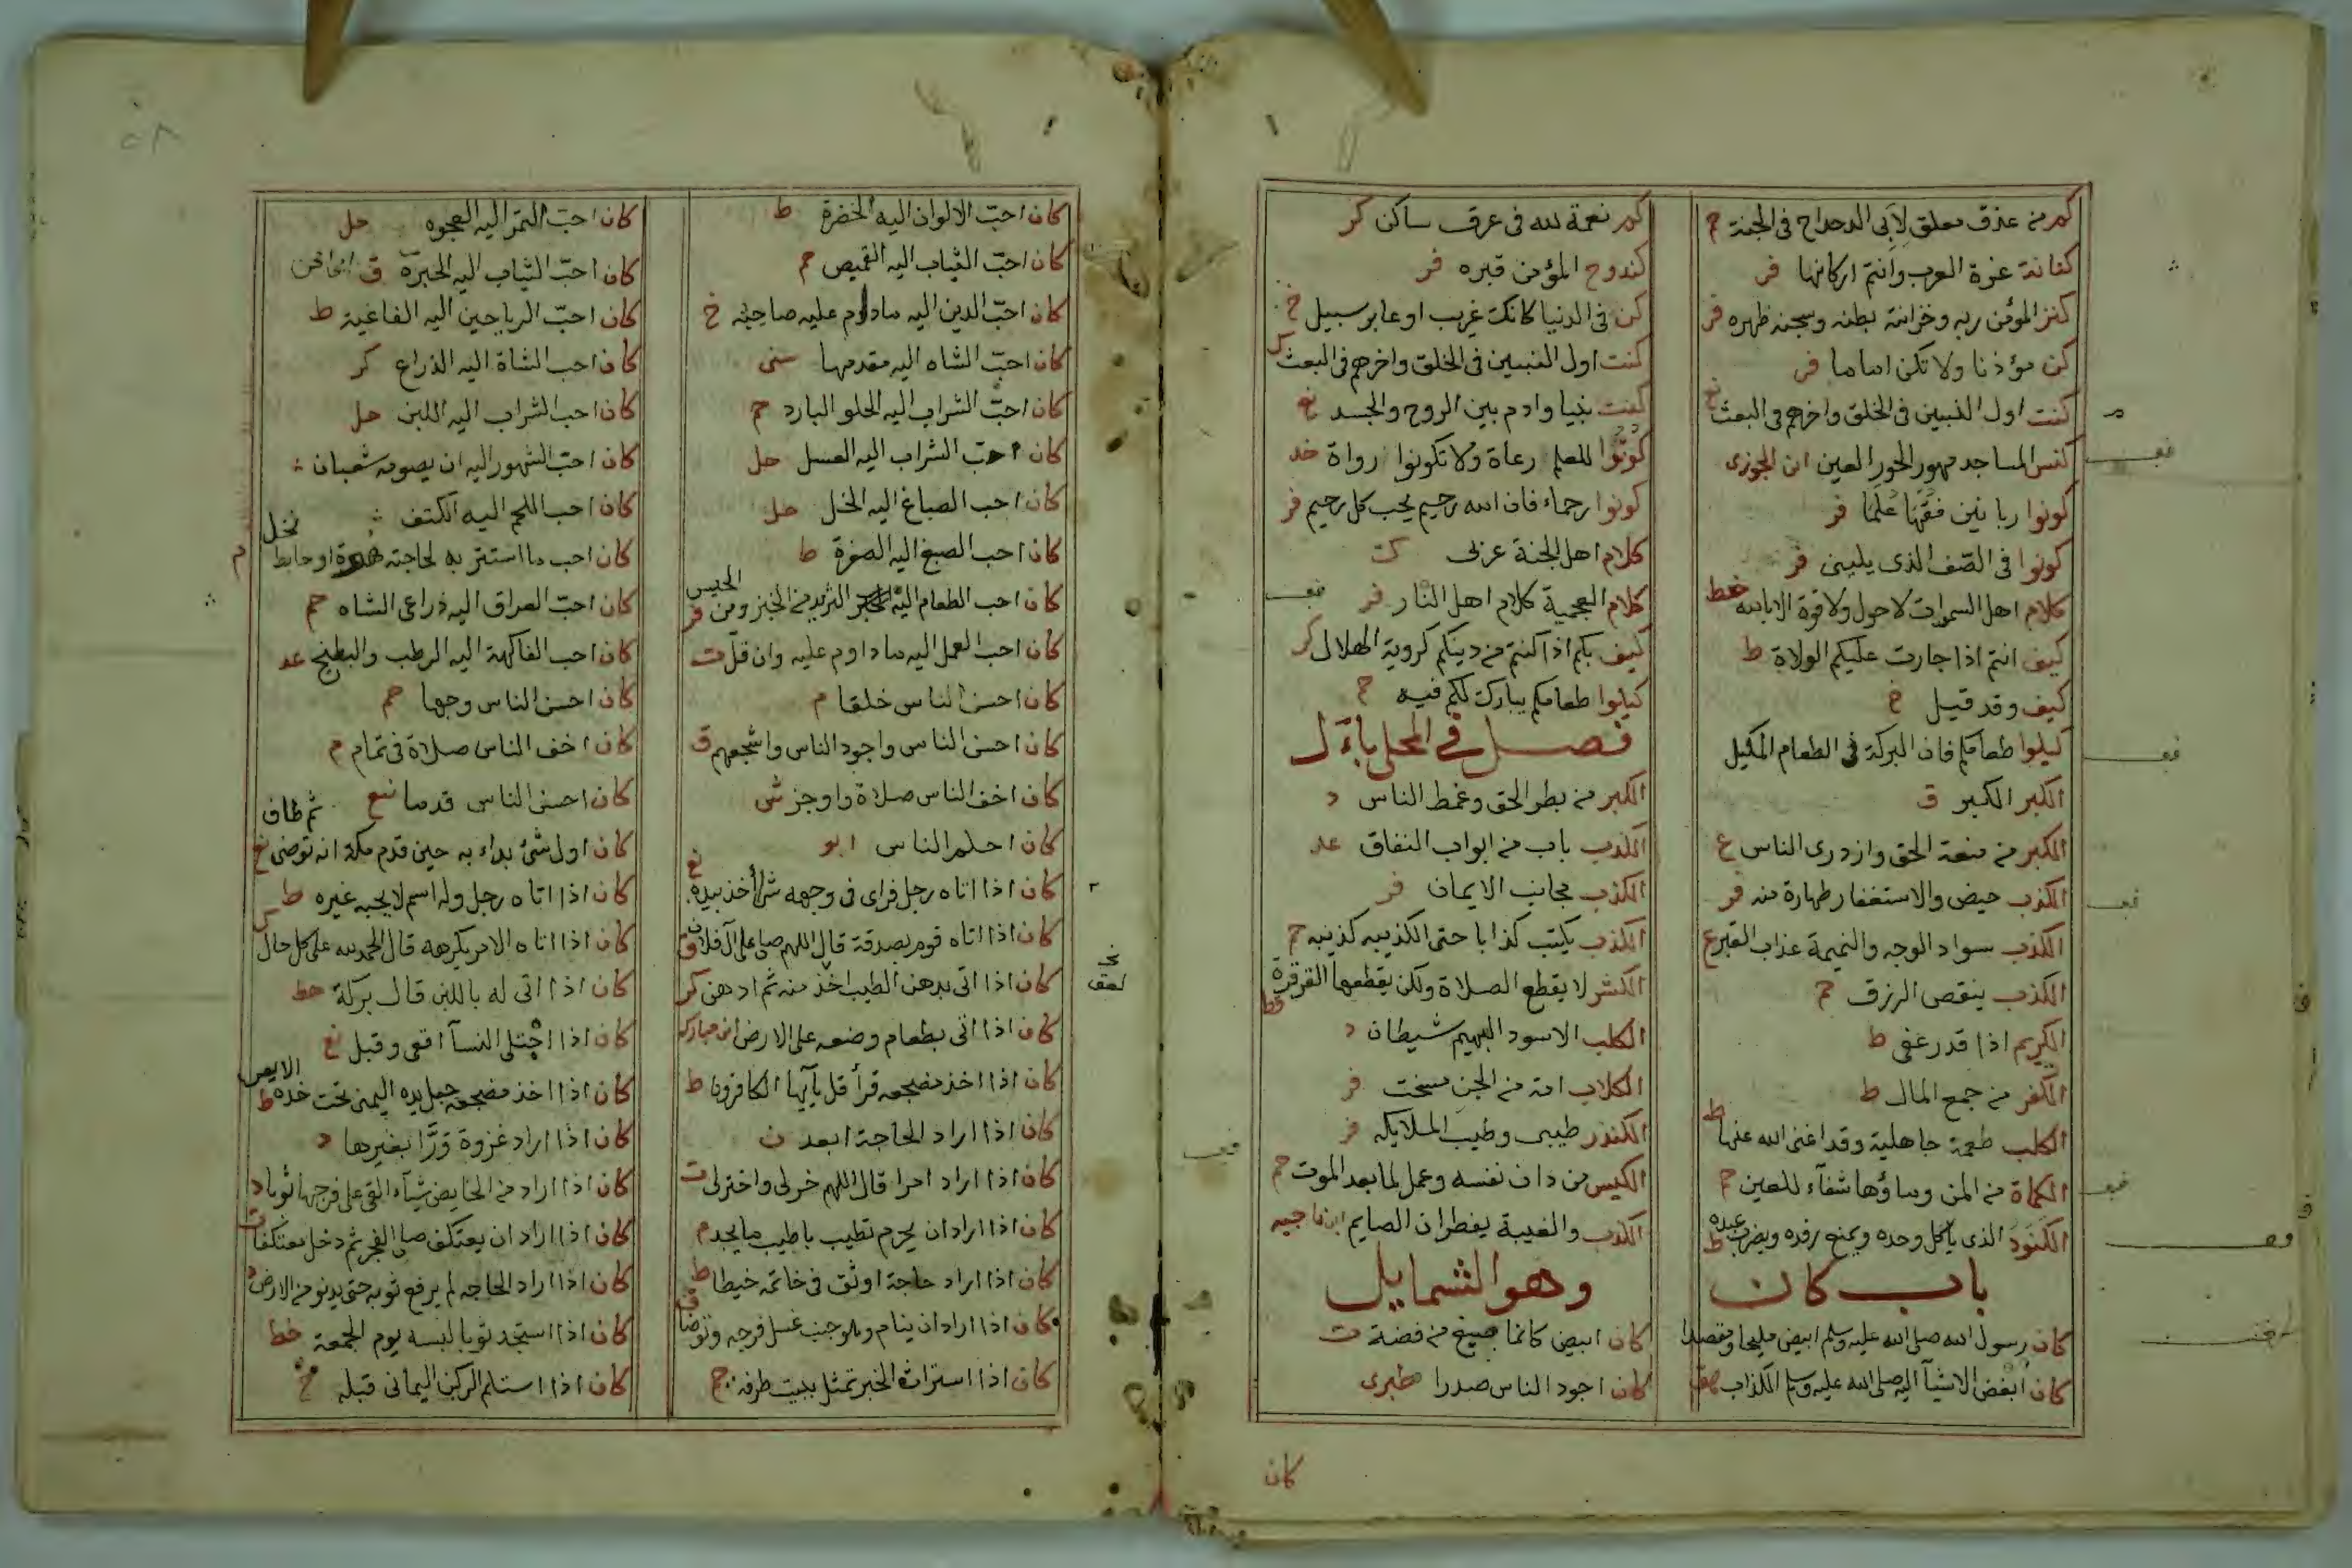 كم من عذق معلق لأبي الدحداح في الجنة م
كنانة عزة العرب وانتم اركانها فر
كنز المؤمن ربه وخزانته بطنه وسجنه ظهره فر
كن مؤذنا ولا تكن اماما فر
كنت اول النبيين في الخلق واخرهم في البعث
كنس المساجد مهور الحور العين ابن الجوزى
كونوا ربانين فقها علما فر
كونوا في الصف الذى يلينى فر
كلام اهل السموات لا حول ولا قوة الا بالله خط
كيف انتم اذا جارت عليكم الولاة ط
كيف وقد قيل خ
كيلوا طعامكم فان البركة في الطعام المكيل
الكبر الكبر ق
الكبر من منعة الحق وازدرى الناس ع
الكذب حيض والاستغفار طهارة منه فر
الكذب سواد الوجه والنميمة عذاب القبر ع
الكذب ينقص الرزق
الكريم اذا قدر عفى ط
الكفر من جمع المال ط
الكلب طعمة جاهلية وقد اغنى الله عنها ط
الكماة من المن وماؤها شفاء للعين
الكنود الذى ياكل وحده ويمنع رفده ويضرب عبده ط
باب كان
كان رسول الله صلى الله عليه وسلم ابيض مليحا مقصدا
كان أبغض الاشيآ اليه صلى الله عليه وسلم الكذاب
كم نعمة لله في عرق ساكن كر
كندوح المؤمن قبره فر
كن في الدنيا كانك غريب او عابر سبيل خ
كنت اول النبيين في الخلق واخرهم في البعث
كنت نبيا وادم بين الروح والجسد
كونوا للعلم رعاة ولا تكونوا رواة
كونوا رحماء فان الله رحيم يحب كل رحيم فر
كلام اهل الجنة عربى
كلام العجمية كلام اهل النار فر
كيف بكم اذا كنتم من دينكم كروية الهلال كر
كيلوا طعامكم يبارك لكم فيه
فصل في المحلى بال
الكبر من بطر الحق وغمط الناس د
الكذب باب من ابواب النفاق عد
الكذب مجانب الايمان فر
الكذب يكتب كذابا حتى الكذيبه كذيبه
الكشر لا يقطع الصلاة ولكن يقطعها القرقرة
الكلب الاسود البهيم شيطان د
الكلاب امة من الجن مسخت فر
الكندر طيبى وطيب الملايكه فر
الكيس من دان نفسه وعمل لما بعد الموت
الكذب والغيبة يفطران الصايم
وهو الشمايل
كان ابيض كانما صيغ من فضة ت
كان اجود الناس صدرا طبرى
كان
كان احب الالوان اليه الخضرة ط
كان احب الثياب اليه القميص
كان احب الدين اليه ما داوم عليه صاحبه خ
كان احب الشاه اليه مقدمها سنى
كان احب الشراب اليه الحلو البارد
كان احب الشراب اليه العسل حل
كان احب الصباغ اليه الخل حل
كان احب الصبغ اليه الصفرة ط
كان احب الطعام اليه الثريد من الخبز ومن الحيس
كان احب العمل اليه ما داوم عليه وان قل ت
كان احسن الناس خلقا م
كان احسن الناس واجود الناس واشجعهم ق
كان اخف الناس صلاة واوجز
كان احلم الناس ابو
كان اذا اتاه رجل فراى في وجهه شرا أخذ بيده
كان اذا اتاه قوم بصدقة قال اللهم صل على آل فلان
كان اذا اتى بدهن الطيب اخذ منه ثم ادهن كر
كان اذا اتى بطعام وضعه على الارض ابن مبارك
كان اذا اخذ مضجعه قرأ قل يآيها الكافرون ط
كان اذا اراد الحاجة ابعد ن
كان اذا اراد امرا قال اللهم خرلى واخترلى ت
كان اذا اراد ان يحرم تطيب باطيب ما يجد م
كان اذا اراد حاجة اوثق في خاتمه خيطا ط
كان اذا اراد ان ينام وهو جنب غسل فرجه وتوضأ
كان اذا استراث الخبر تمثل ببيت طرفه
٥٨
كان احب التمر اليه العجوه حل
كان احب الثياب اليه الحبرة ق
كان احب الرياحين اليه الفاغية ط
كان احب الشاة اليه الذراع كر
كان احب الشراب اليه اللبن حل
كان احب الشهور اليه ان يصومه شعبان
كان احب اللحم اليه الكتف
كان احب ما استتر به لحاجته او حايط نخل
كان احب العراق اليه ذراعى الشاه حم
كان احب الفاكهة اليه الرطب والبطيخ عد
كان احسن الناس وجها حم
كان اخف الناس صلاة في تمام م
كان احسن الناس قدما
كان اول شئ بداء به حين قدم مكة انه توضى ثم طاف
كان اذا اتاه رجل وله اسم لا يحبه غيره ط
كان اذا اتاه الامر يكرهه قال الحمد لله على كل حال
كان اذا اتى له باللبن قال بركة
كان اذا اجتلى النسآ اقعى وقبل
كان اذا اخذ مضجعه جعل يده اليمنى تحت خده الايمن ط
كان اذا اراد غزوة ورا بغيرها د
كان اذا اراد من الحايض شيأ القى على فرجها ثوبا د
كان اذا اراد ان يعتكف صلى الفجر ثم دخل معتكفا
كان اذا اراد الحاجه لم يرفع ثوبه حتى يدنو من الارض
كان اذا استجد ثوبا لبسه يوم الجمعة خط
كان اذا استلم الركن اليمانى قبله